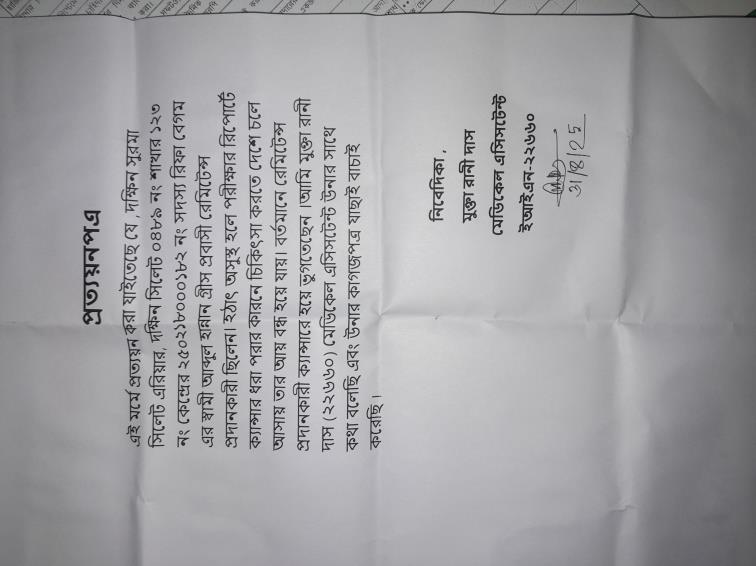 প্রত্যয়নপত্র
এই মর্মে প্রত্যয়ন করা যাইতেছে যে ,দক্ষিন সুরমা
সিলেট এরিয়ার, দক্ষিন সিলেট ০৪৮৯ নং শাখার ১২৩
নং কেন্দ্রের ২৫০২১৮০০০১৮২ নং সদস্য রিফা বেগম
এর স্বামী আব্দুল হান্নান গ্রীস প্রবাসী রেমিটেন্স
প্রদানকারী ছিলেন। হঠাৎ অসুস্থ হলে পরীক্ষার রিপোর্টে
ক্যান্সার ধরা পরার কারনে চিকিৎসা করতে দেশে চলে
আসায় তার আয় বন্ধ হয়ে যায়। বর্তমানে রেমিটেন্স
প্রদানকারী ক্যান্সারে হয়ে ভুগতেছেন ।আমি মুক্তা রানী
দাস (২২৬৬০) মেডিকেল এসিসটেন্ট উনার সাথে
কথা বলেছি এবং উনার কাগজপত্র যাছাই বাচাই
করেছি ।
নিবেদিকা ,
মুক্তা রানী দাস
মেডিকেল এসিসটেন্ট
ইআইএন-২২৬৬০
31/8/25